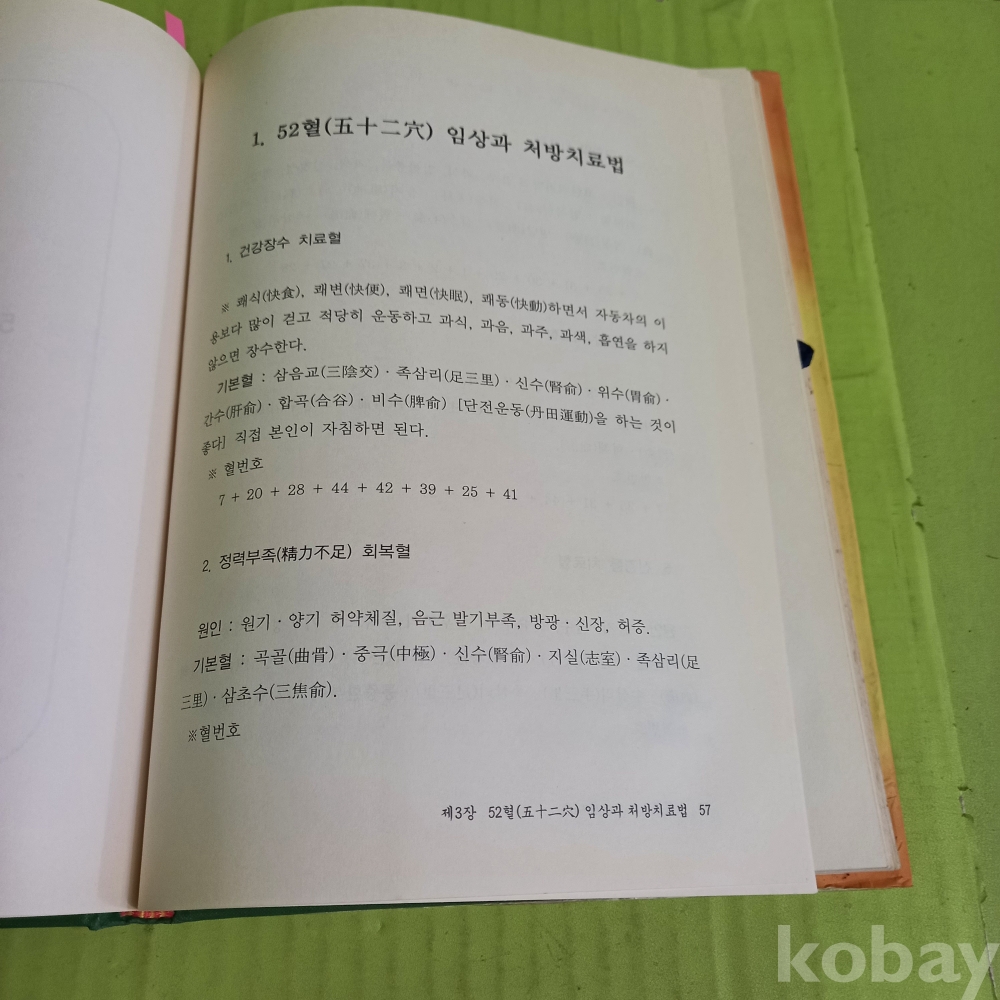 1. 52혈(五十二穴) 임상과 처방치료법
1. 건강장수 치료혈
※ 쾌식(快食), 쾌변(快便), 쾌면(快眠), 쾌동(快動)하면서 자동차의 이
용보다 많이 걷고 적당히 운동하고 과식, 과음, 과주, 과색, 흡연을 하지
않으면 장수한다.
기본혈 : 삼음교(三陰交)·족삼리(足三里)·신수(腎俞)·위수(胃俞)·
간수(肝俞)·합곡(合谷)·비수(脾俞) [단전운동(丹田運動)을 하는 것이
좋다] 직접 본인이 자침하면 된다.
※ 혈번호
7 + 20 + 28 + 44 + 42 + 39 + 25 + 41
2. 정력부족(精力不足) 회복혈
원인 : 원기·양기 허약체질, 음근 발기부족, 방광·신장, 허증.
기본혈 : 곡골(曲骨)·중극(中極)·신수(腎俞)·지실(志室)·족삼리(足
三里)·삼초수(三焦俞).
※혈번호
제3장 52혈(五十二穴) 임상과 처방치료법 57
kobay